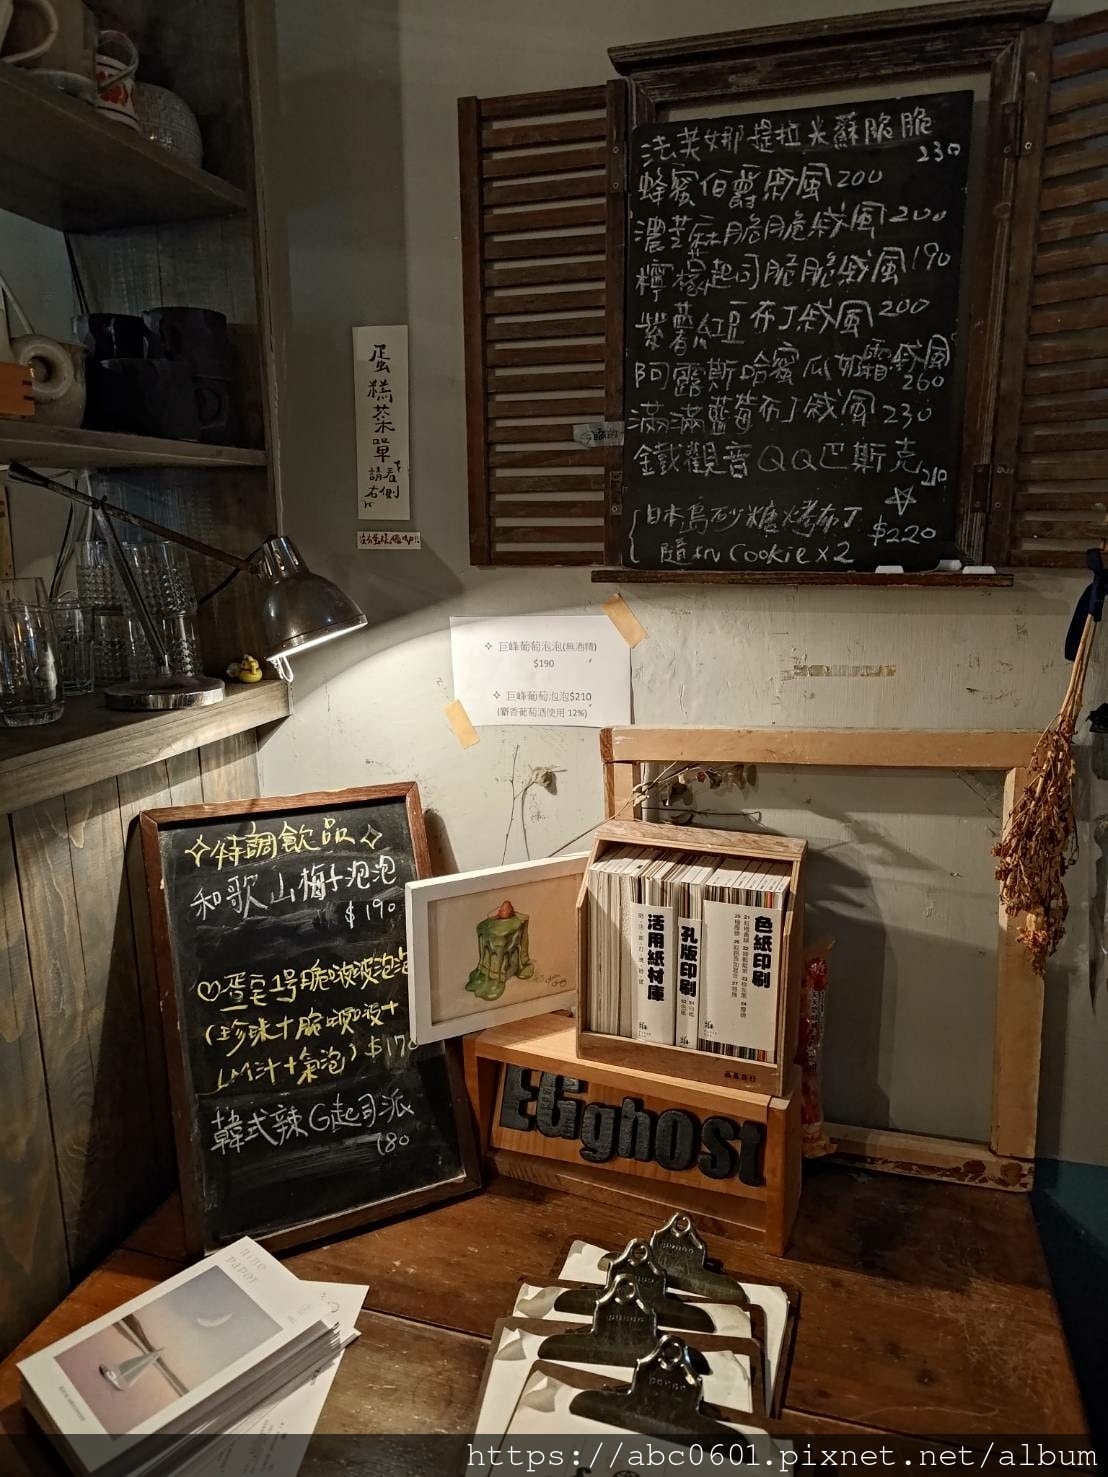 法芙娜提拉米蘇脆脆
230
蜂蜜伯爵戚風200
濃芝麻脆脆戚風200
檸檬起司脆脆戚風190
紫薯紅豆布丁戚風200
阿露斯哈蜜瓜奶霜戚風
260
滿滿藍莓布丁戚風230
鐵觀音QQ巴斯克
210
日本島砂糖烤布丁
$220
隨机Cookie x2
蛋糕菜單
請看
右側
✧ 巨峰葡萄泡泡(無酒精)
$190
✧ 巨峰葡萄泡泡$210
(麝香葡萄酒使用 12%)
✧特調飲品✧
和歌山梅子泡泡
$190
♡蛋宅1号脆啵啵泡泡
(珍珠+脆啵啵+
LM汁+氣泡) $170
韓式辣G起司派
180
活用紙材庫
孔版印刷
色紙印刷
EGghost
https://abc0601.pixnet.net/album